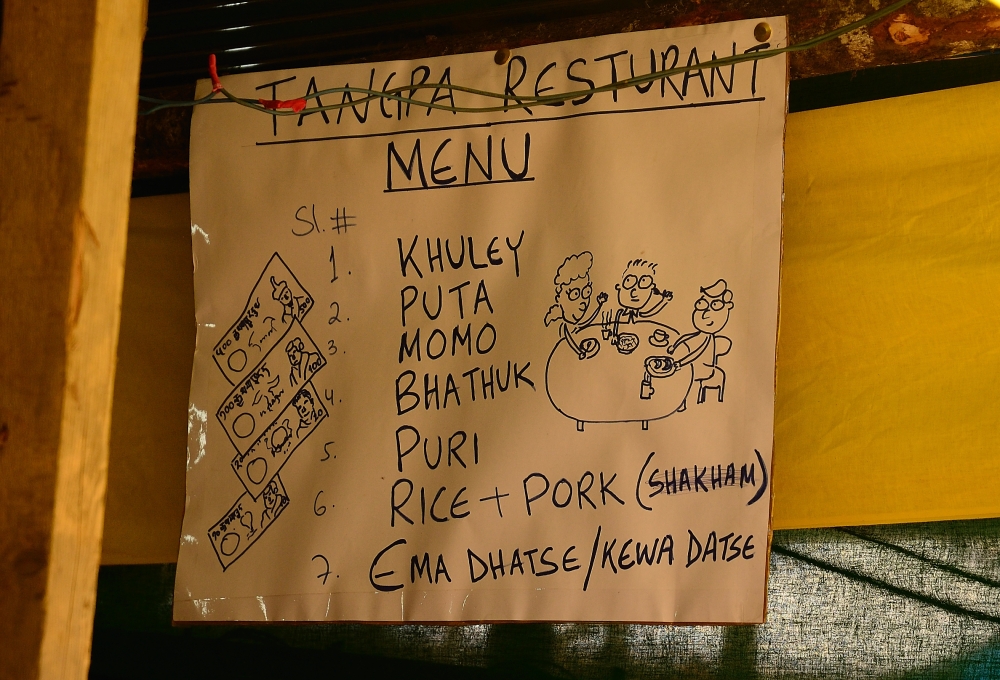 TANGPA RESTURANT
MENU
Sl. #
1. KHULEY
2. PUTA
3. MOMO
4. BHATHUK
5. PURI
6. RICE + PORK (SHAKHAM)
7. EMA DHATSE/KEWA DATSE
500
100